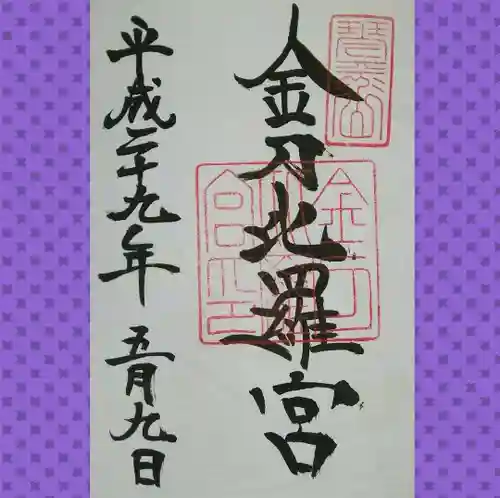 金刀比羅宮
平成二十九年 五月九日